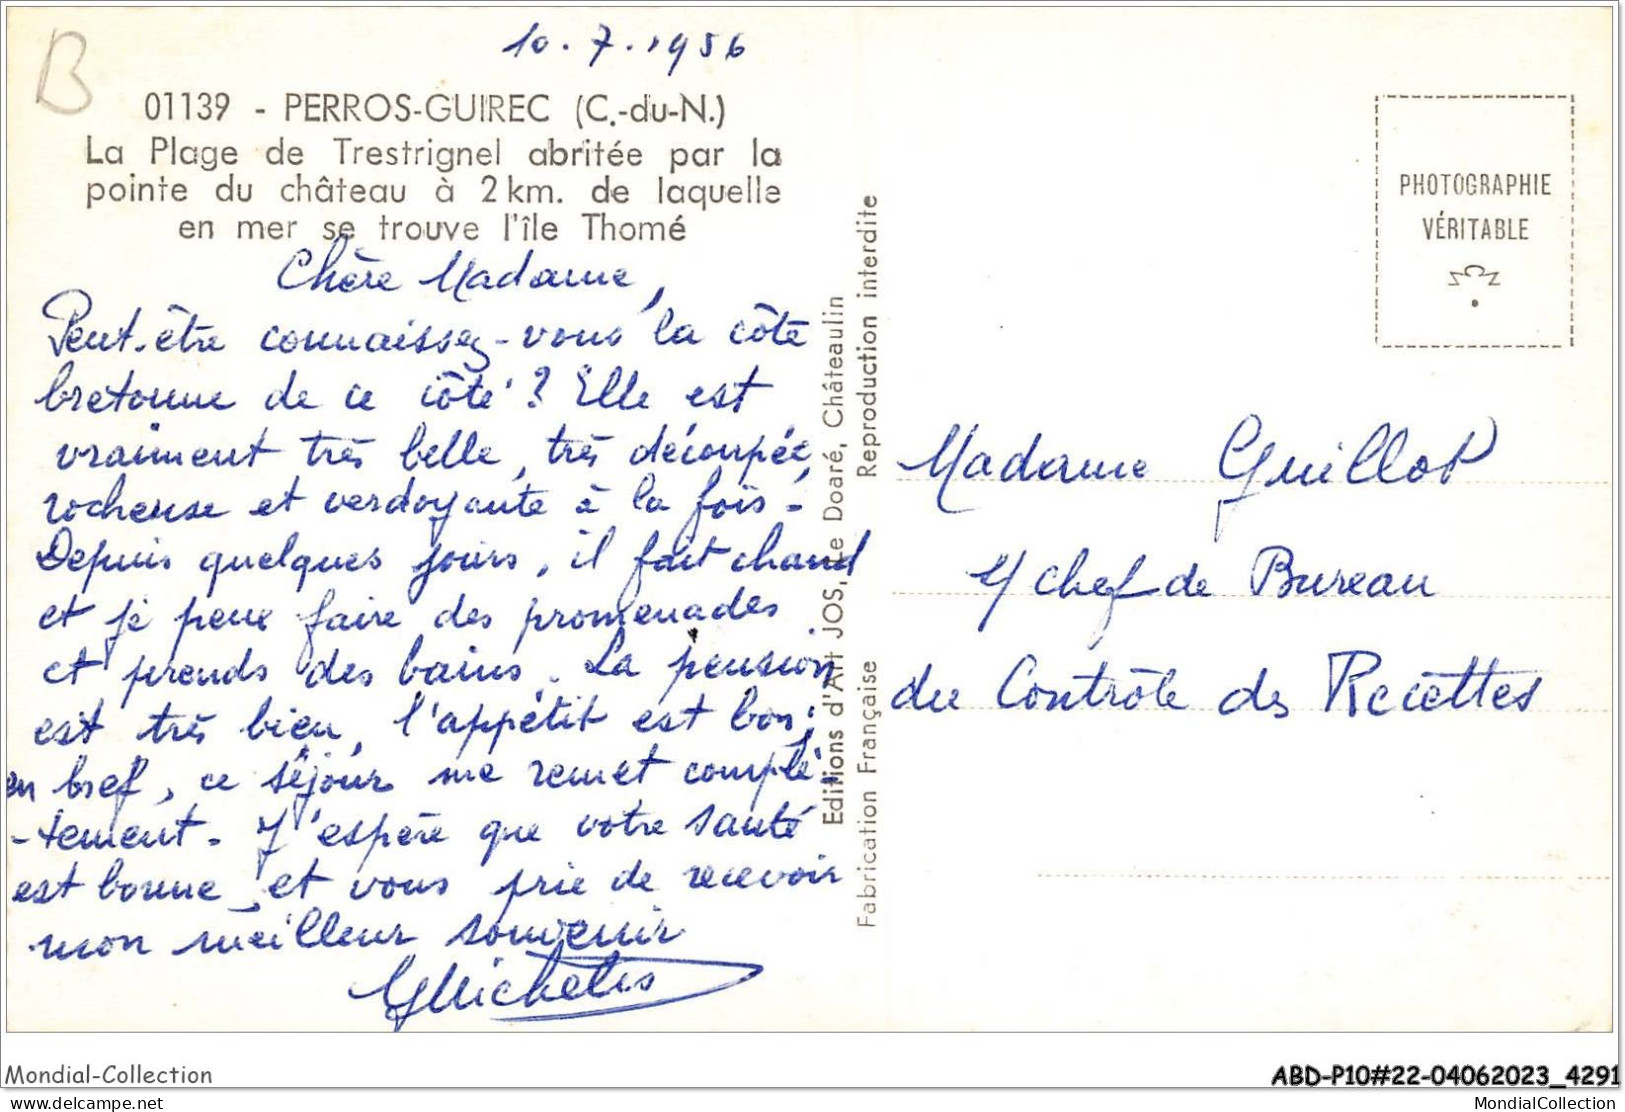 B
10.7.1956
01139 - PERROS-GUIREC (C.-du-N.)
La Plage de Trestrignel abritée par la
pointe du château à 2 km. de laquelle
en mer se trouve l'île Thomé
Chère Madame,
Peut-être connaissez-vous la côte
bretonne de ce côté ? Elle est
vraiment très belle, très découpée,
rocheuse et verdoyante à la fois -
Depuis quelques jours, il fait chaud
et je peux faire des promenades
et prends des bains. La pension
est très bien, l'appétit est bon ;
en bref, ce séjour me remet complè-
-tement - J'espère que votre santé
est bonne, et vous prie de recevoir
mon meilleur souvenir
Editions d'Art JOS, Le Doaré, Châteaulin
Fabrication Française Reproduction interdite
PHOTOGRAPHIE
VÉRITABLE
Madame Guillot
s/ chef de Bureau
du Contrôle des Recettes
Mondial-Collection
ABD-P10#22-04062023_4291
delcampe.net
MondialCollection